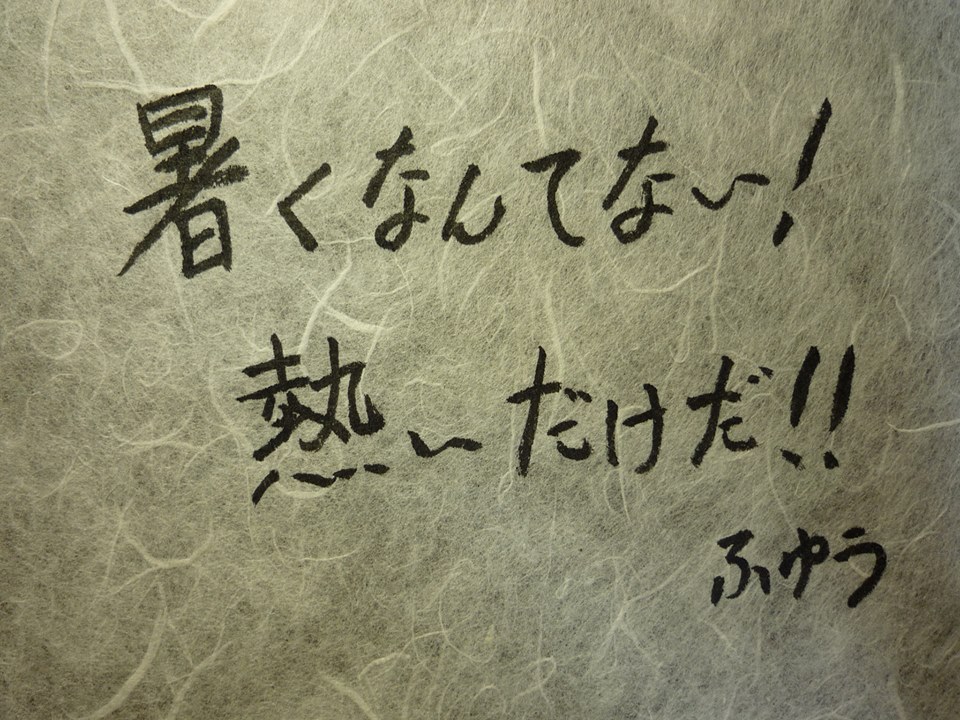 暑くなんてない!
熱いだけだ!!
ふゆう